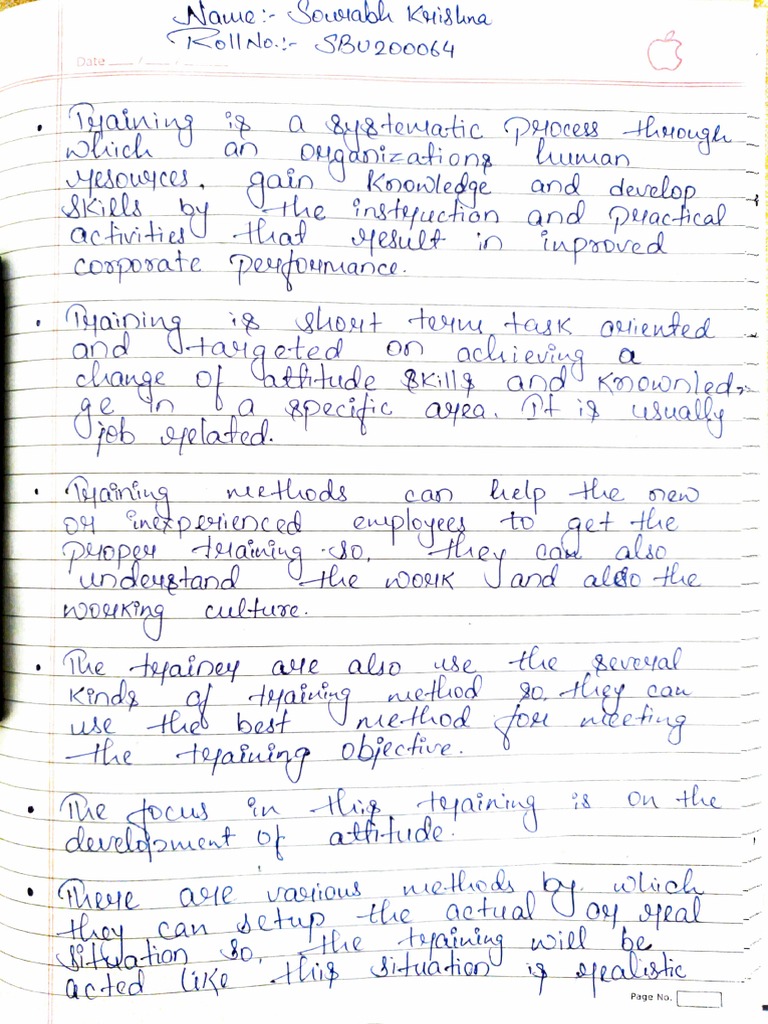 Name:- Sourabh Krishna
Roll No.:- SBU200064
Date
• Training is a systematic process through
which an organizations human
resources, gain knowledge and develop
skills by the instruction and practical
activities that result in inproved
corporate performance.
• Training is short term task oriented
and targeted on achieving a
change of attitude skills and knownled-
ge in a specific area. It is usually
job related.
• Training methods can help the new
or inexperienced employees to get the
proper training so, they can also
understand the work and also the
working culture.
• The trainer are also use the several
kinds of training method so, they can
use the best method for meeting
the training objective.
• The focus in this training is on the
development of attitude.
• There are various methods by which
they can setup the actual or real
situation so, the training will be
acted like this situation is realistic
Page No.